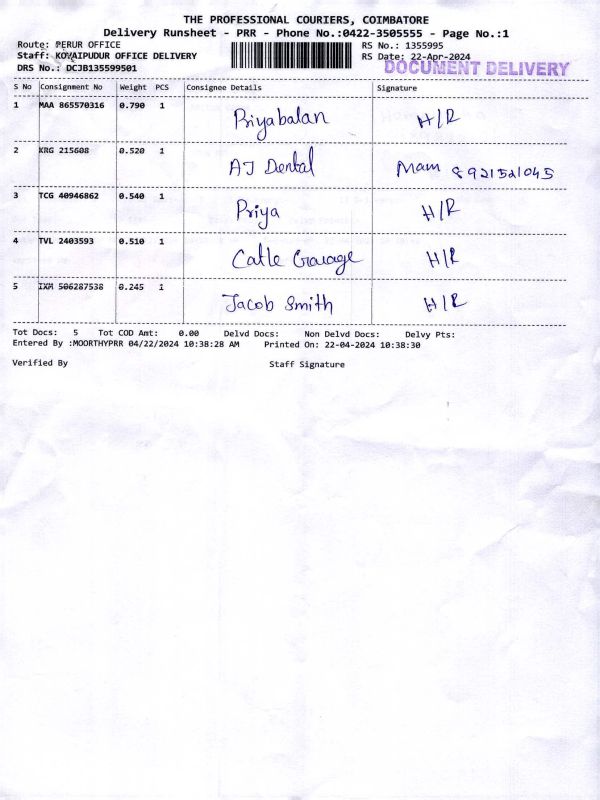 THE PROFESSIONAL COURIERS, COIMBATORE
Delivery Runsheet - PRR - Phone No.:0422-3505555 - Page No.:1
Route: PERUR OFFICE RS No.: 1355995
Staff: KOVAIPUDUR OFFICE DELIVERY RS Date: 22-Apr-2024
DRS No.: DCJB135599501 DOCUMENT DELIVERY
S No Consignment No Weight PCS Consignee Details Signature
1 MAA 865570316 0.790 1 Priyabalan H/R
2 KRG 215608 0.520 1 AJ Dental Mam 8921521045
3 TCG 40946862 0.540 1 Priya H/R
4 TVL 2403593 0.510 1 Catle Garage H/R
5 IXM 506287538 0.245 1 Jacob Smith H/R
Tot Docs: 5 Tot COD Amt: 0.00 Delvd Docs: Non Delvd Docs: Delvy Pts:
Entered By :MOORTHYPRR 04/22/2024 10:38:28 AM Printed On: 22-04-2024 10:38:30
Verified By Staff Signature